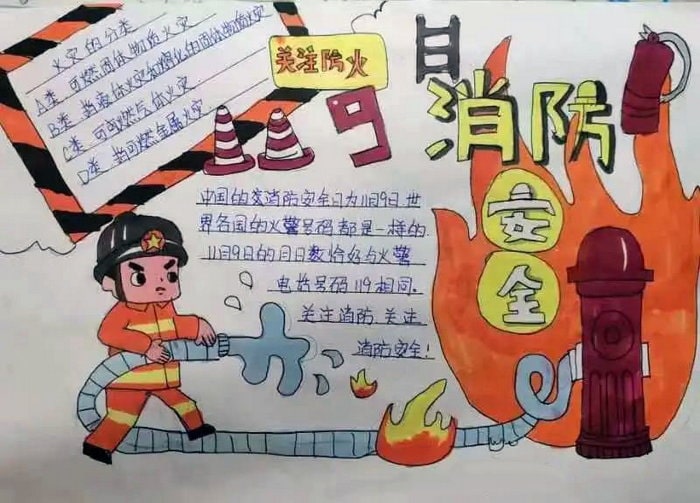 火灾的分类
A类:可燃固体物质火灾
B类:当液体火灾和熔化的固体物质火灾
C类:可燃气体火灾
D类:当可燃金属火灾
关注防火
119
日
消防
安全
中国的消防安全日为11月9日.世
界各国的火警号码都是一样的
11月9日的月日数恰好与火警
电话号码119相同.
关注消防.关注
消防安全!